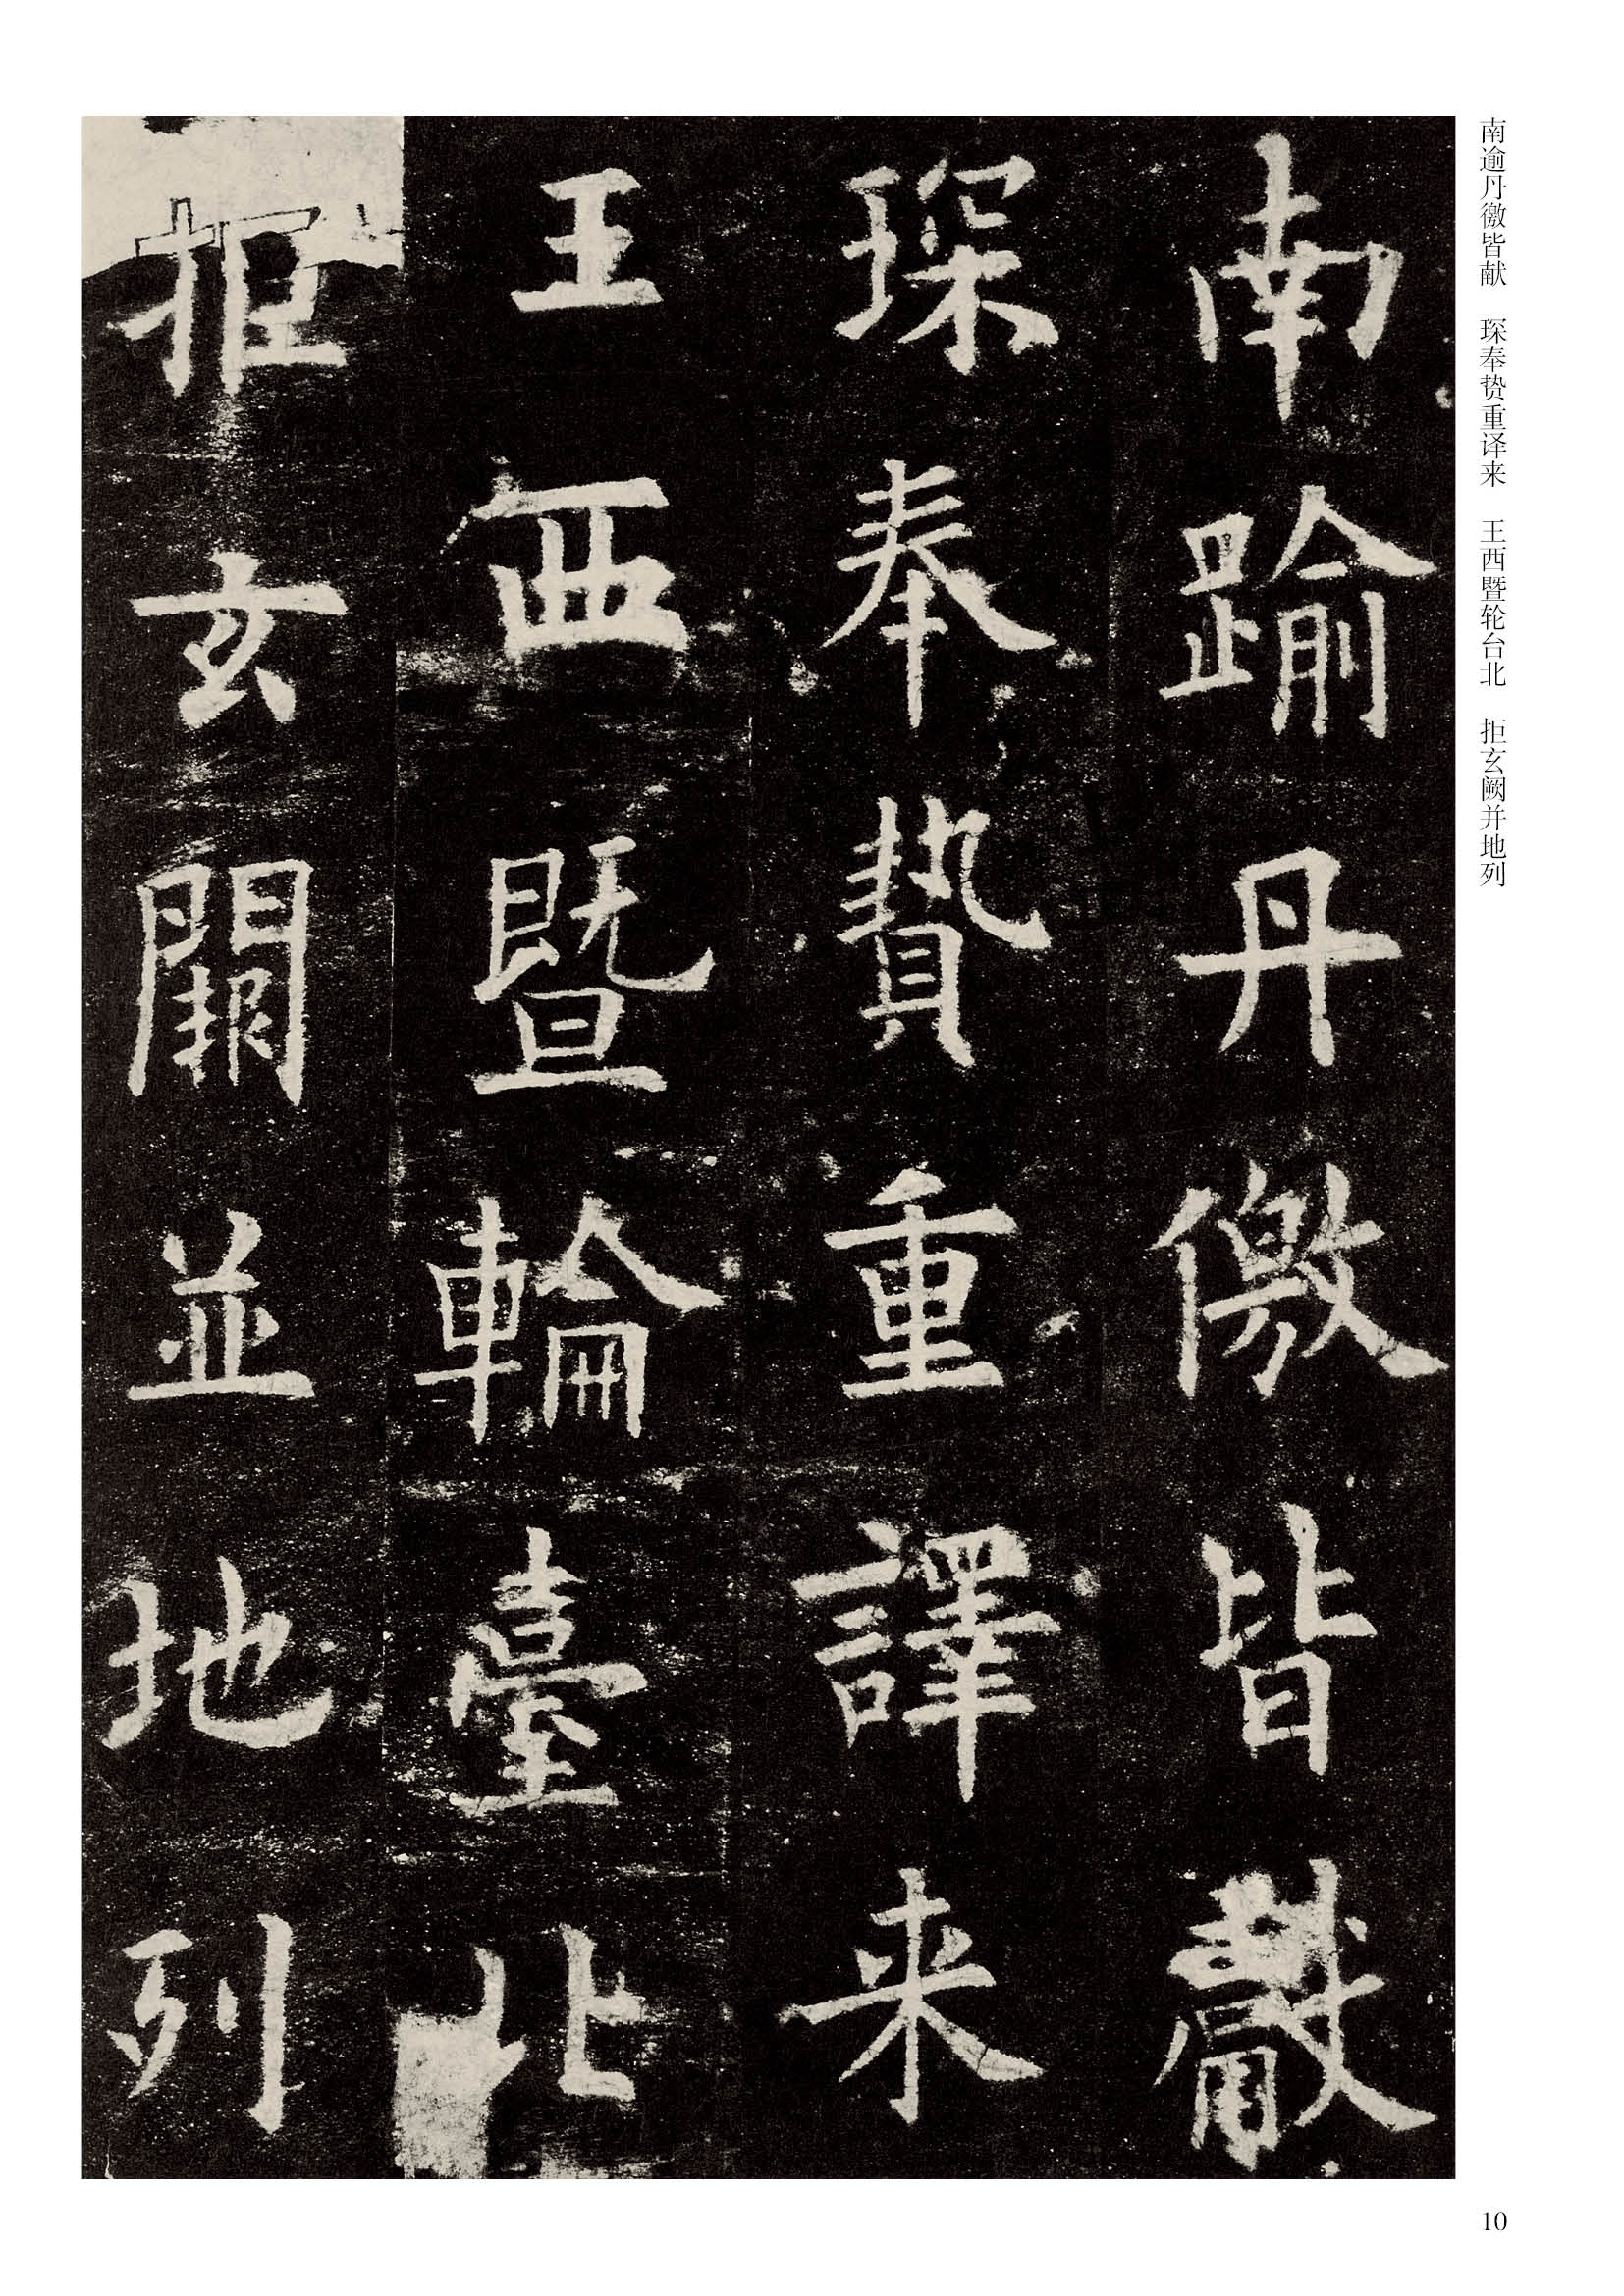 南逾丹徼皆献 琛奉贽重译来 王西暨轮台北 拒玄阙并地列
南踰丹儌皆獻
琛奉贄重譯来
王西暨輪臺北
拒玄闕並地列
10